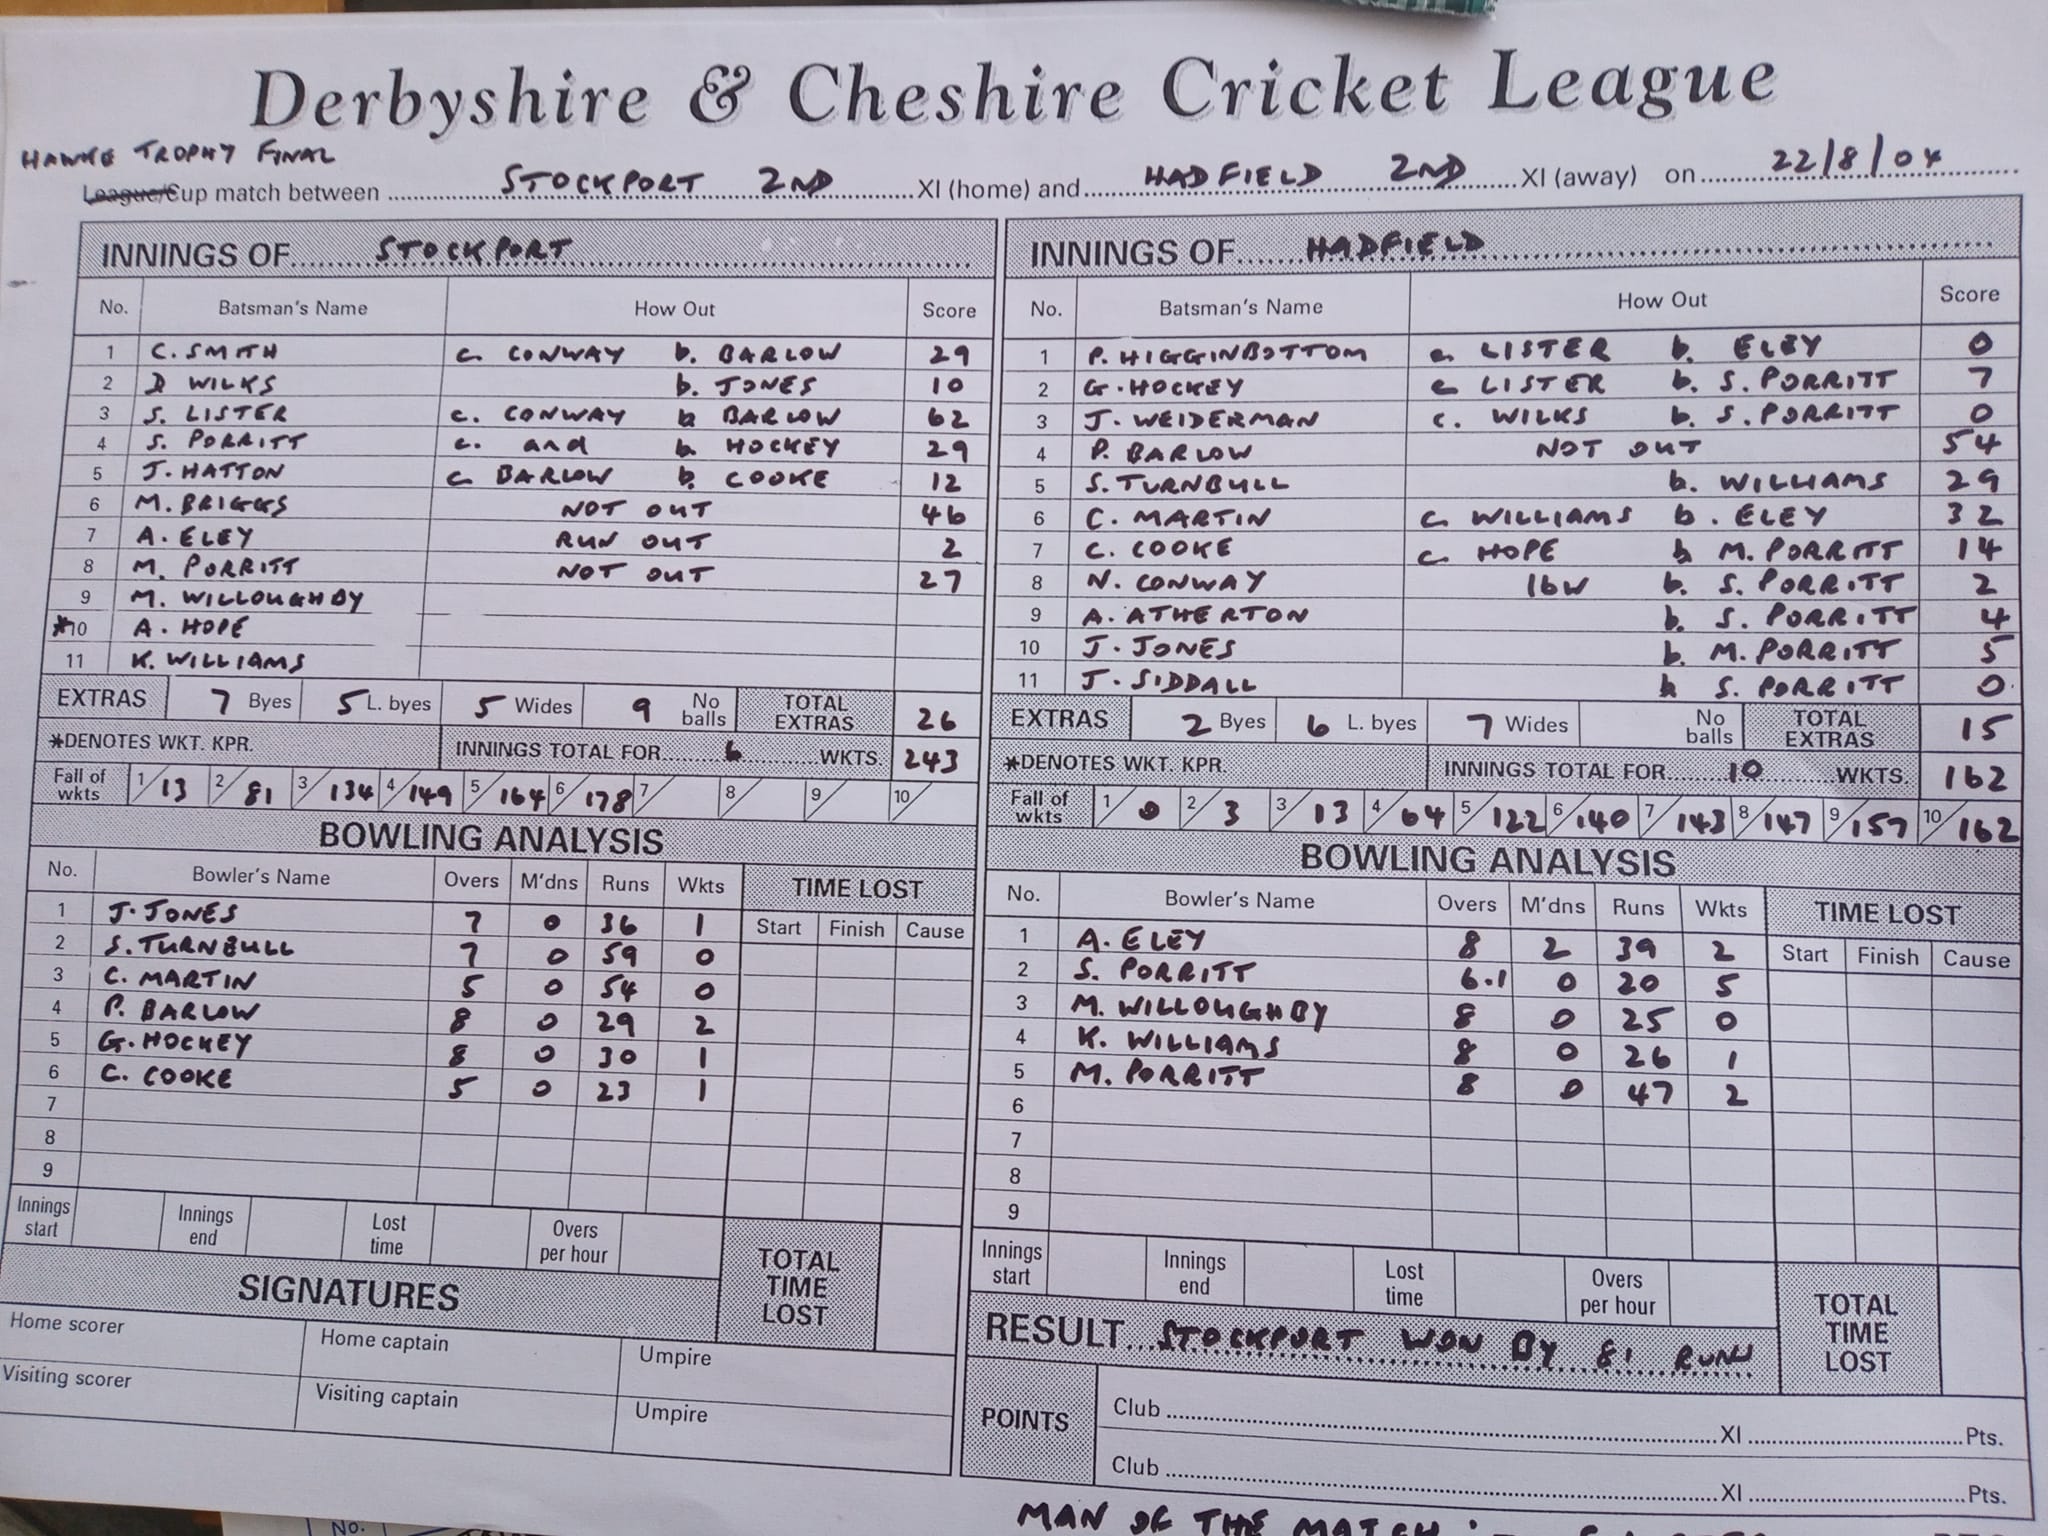 Derbyshire & Cheshire Cricket League
HAWKE TROPHY FINAL
League/Cup match between STOCKPORT 2ND XI (home) and HADFIELD 2ND XI (away) on 22/8/04
INNINGS OF STOCKPORT
No. Batsman's Name How Out Score
1 C. SMITH c. CONWAY b. BARLOW 29
2 D WILKS b. JONES 10
3 S. LISTER c. CONWAY b BARLOW 62
4 S. PORRITT c. and b. HOCKEY 29
5 J. HATTON c BARLOW b. COOKE 12
6 M. BRIGGS NOT OUT 46
7 A. ELEY RUN OUT 2
8 M. PORRITT NOT OUT 27
9 M. WILLOUGHBY
*10 A. HOPE
11 K. WILLIAMS
EXTRAS 7 Byes 5 L. byes 5 Wides 9 No balls TOTAL EXTRAS 26
*DENOTES WKT. KPR. INNINGS TOTAL FOR 6 WKTS. 243
Fall of wkts 1/13 2/81 3/134 4/149 5/164 6/178 7/ 8/ 9/ 10/
BOWLING ANALYSIS
No. Bowler's Name Overs M'dns Runs Wkts TIME LOST
Start Finish Cause
1 J. JONES 7 0 36 1
2 S. TURNBULL 7 0 59 0
3 C. MARTIN 5 0 54 0
4 P. BARLOW 8 0 29 2
5 G. HOCKEY 8 0 30 1
6 C. COOKE 5 0 23 1
7
8
9
Innings start Innings end Lost time Overs per hour TOTAL TIME LOST
SIGNATURES
Home scorer Home captain Umpire
Visiting scorer Visiting captain Umpire
INNINGS OF HADFIELD
No. Batsman's Name How Out Score
1 P. HIGGINBOTTOM c LISTER b. ELEY 0
2 G. HOCKEY c LISTER b. S. PORRITT 7
3 J. WEIDERMAN c. WILKS b. S. PORRITT 0
4 P. BARLOW NOT OUT 54
5 S. TURNBULL b. WILLIAMS 29
6 C. MARTIN c WILLIAMS b. ELEY 32
7 C. COOKE c HOPE b M. PORRITT 14
8 N. CONWAY lbw b. S. PORRITT 2
9 A. ATHERTON b. S. PORRITT 4
10 J. JONES b. M. PORRITT 5
11 J. SIDDALL b S. PORRITT 0
EXTRAS 2 Byes 6 L. byes 7 Wides No balls TOTAL EXTRAS 15
*DENOTES WKT. KPR. INNINGS TOTAL FOR 10 WKTS. 162
Fall of wkts 1/0 2/3 3/13 4/64 5/122 6/140 7/143 8/147 9/157 10/162
BOWLING ANALYSIS
No. Bowler's Name Overs M'dns Runs Wkts TIME LOST
Start Finish Cause
1 A. ELEY 8 2 39 2
2 S. PORRITT 6.1 0 20 5
3 M. WILLOUGHBY 8 0 25 0
4 K. WILLIAMS 8 0 26 1
5 M. PORRITT 8 0 47 2
6
7
8
9
Innings start Innings end Lost time Overs per hour TOTAL TIME LOST
RESULT STOCKPORT WON BY 81 RUNS
POINTS
Club XI Pts.
Club XI Pts.
MAN OF THE MATCH
No.